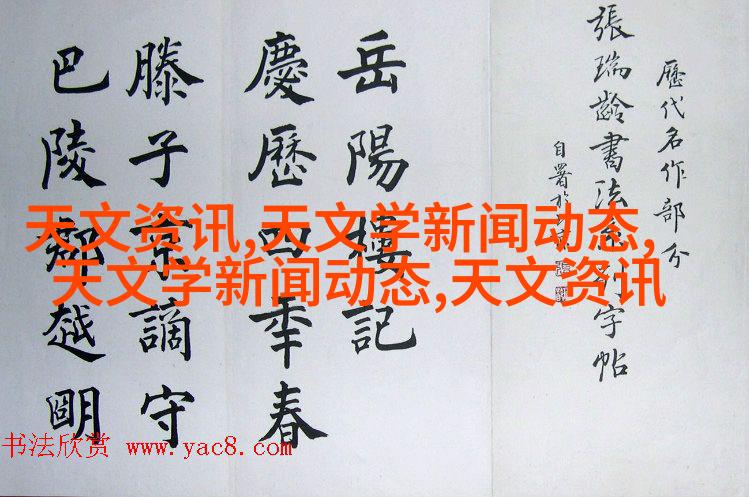 歷代名作部分
張瑞齡書法系列字帖
自署於
岳陽樓記
慶歷四年春
滕子京謫守
巴陵郡越明
天文资讯,天文学新闻动态,
天文学新闻动态,天文资讯
书法欣赏 www.yac8.com